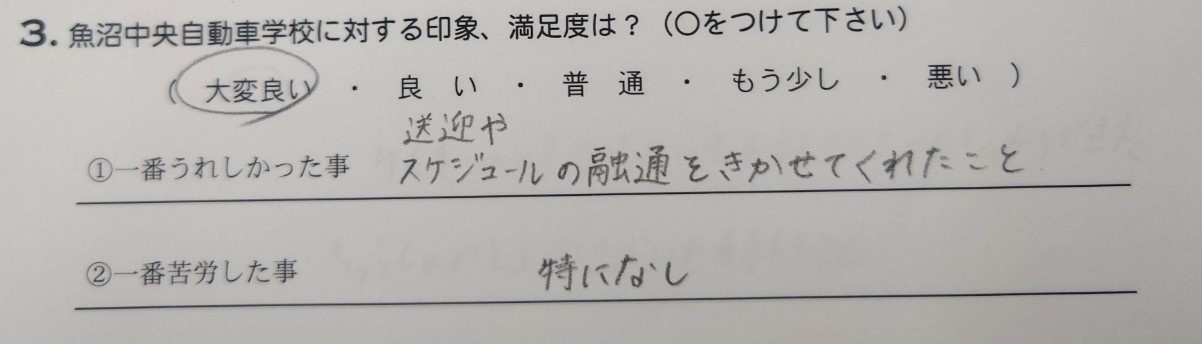 3. 魚沼中央自動車学校に対する印象、満足度は？（〇をつけて下さい）
（ 大変良い ・ 良 い ・ 普 通 ・ もう少し ・ 悪い ）
送迎や
①一番うれしかった事 スケジュールの融通をきかせてくれたこと
②一番苦労した事 特になし